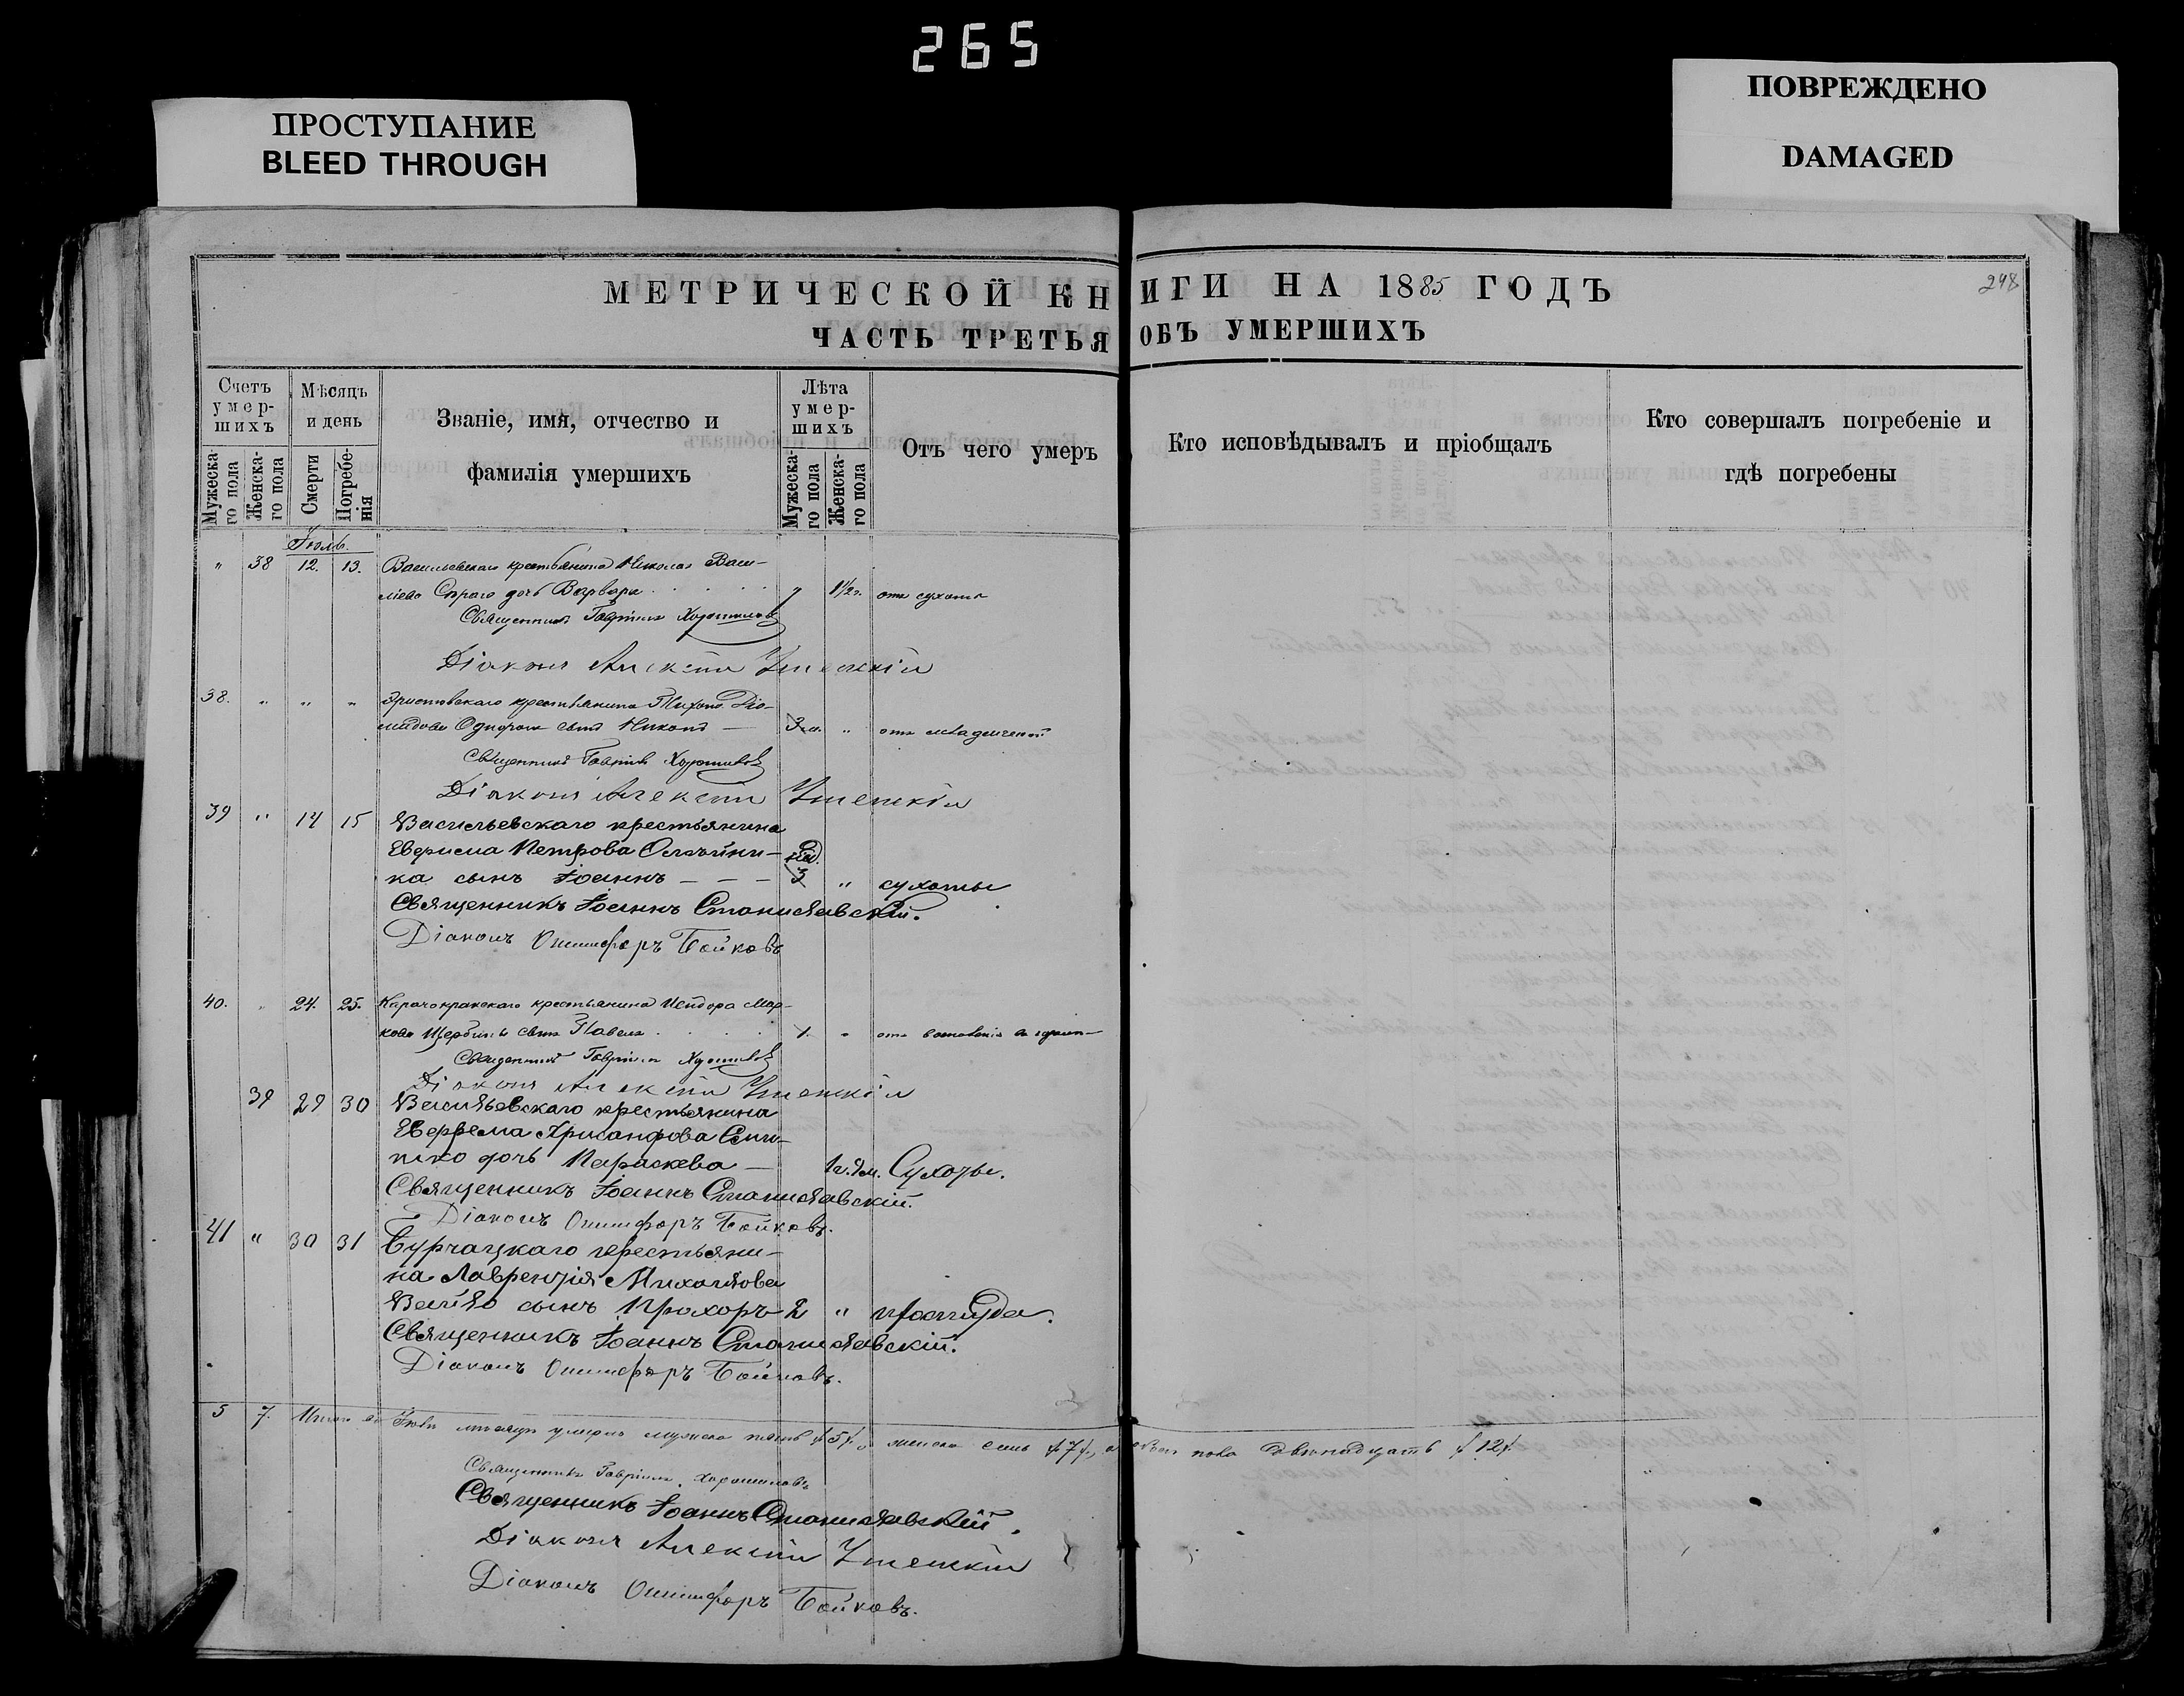 265
ПРОСТУПАНИЕ
BLEED THROUGH
ПОВРЕЖДЕНО
DAMAGED
МЕТРИЧЕСКОЙ КНИГИ НА 1885 ГОДЪ
248
ЧАСТЬ ТРЕТЬЯ ОБЪ УМЕРШИХЪ
Счетъ
умер-
шихъ
Мужеска-
го пола
Женска-
го пола
Мѣсяцъ
и день
Смерти
Погребе-
нія
Званіе, имя, отчество и
фамилія умершихъ
Лѣта
умер-
шихъ
Мужеска-
го пола
Женска-
го пола
Отъ чего умеръ
Кто исповѣдывалъ и пріобщалъ
Кто совершалъ погребеніе и
гдѣ погребены
Іюль.
" 38 12. 13. Васильевскаго крестьянина Николая Васи-
ліева дочь Варвара " 1½ г. отъ сухоты
Священникъ Гавріилъ Хорошиловъ
Діаконъ Алексій
38. " " " крестьянина Діо-
мидова сынъ " отъ младенческой
Священникъ Гавріилъ Хорошиловъ
Діаконъ Алексій
39 " 14 15 Васильевскаго крестьянина
Петрова
ка сынъ Іоаннъ — — — 3 " сухоты
Священникъ Іоаннъ Станиславскій.
Діаконъ Онисифоръ Бойковъ
40. " 24. 25. Карачокракскаго крестьянина Исидора Мар-
кова Щербины сынъ Павелъ 1. " отъ
Священникъ Гавріилъ Хорошиловъ
Діаконъ Алексій
39 29 30 Васильевскаго крестьянина
Хрисанфова
дочь Параскева — 1 г. Сухоты.
Священникъ Іоаннъ Станиславскій.
Діаконъ Онисифоръ Бойковъ.
41 " 30 31 Бурчацкаго крестьяни-
на Лаврентія Михайлова
сынъ Прохоръ 2 " простуда.
Священникъ Іоаннъ Станиславскій.
Діаконъ Онисифоръ Бойковъ.
5 7. Итого въ Іюлѣ мѣсяцѣ умерло мужска пять /5/, женска семь /7/, а обоего пола двѣнадцать /12/.
Священникъ Гавріилъ Хорошиловъ
Священникъ Іоаннъ Станиславскій.
Діаконъ Алексій
Діаконъ Онисифоръ Бойковъ.